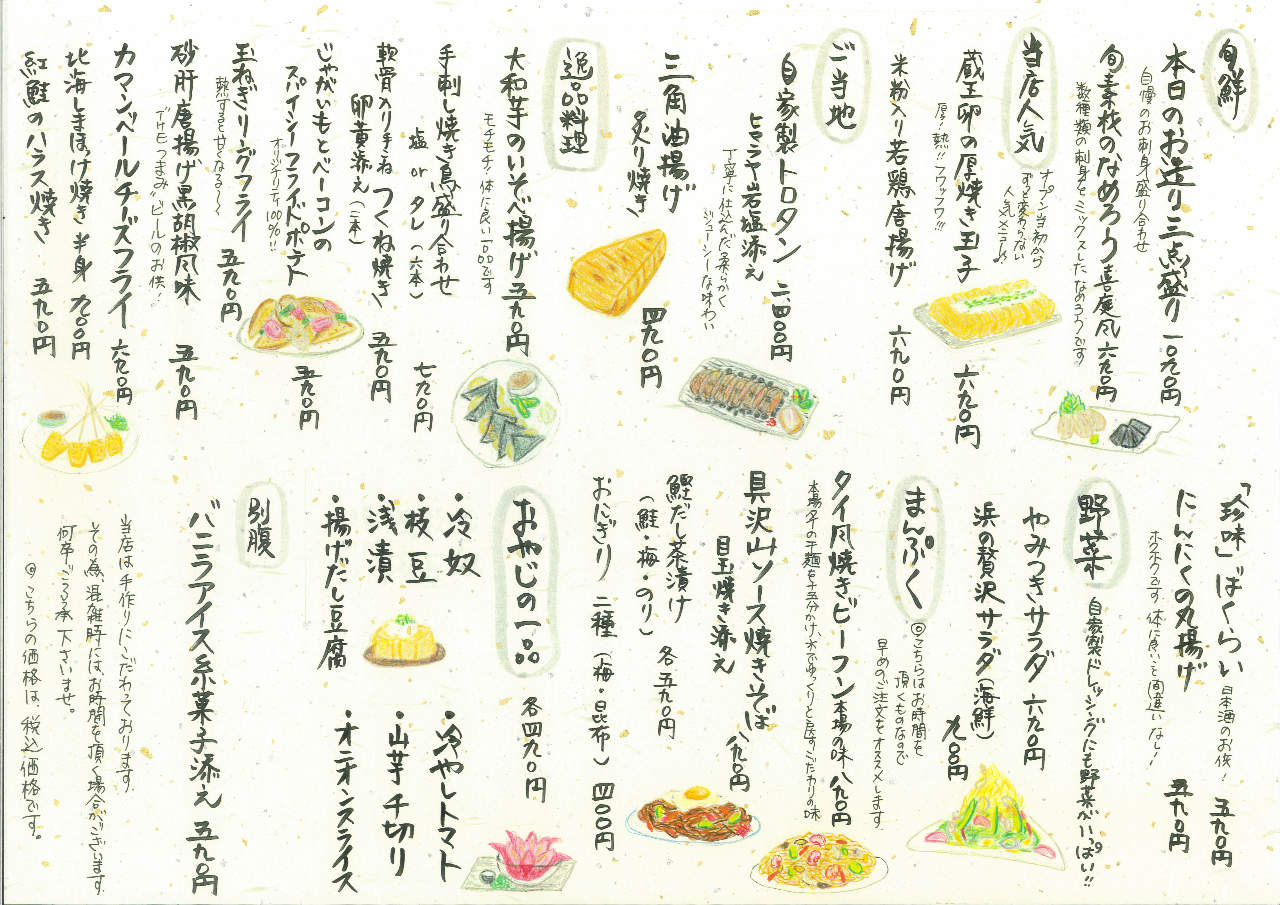 旬鮮
本日のお造り三点盛り 一〇九〇円
自慢のお刺身盛り合わせ
旬素材のなめろう喜庭風 六九〇円
数種類の刺身をミックスしたなめろうです
当店人気
オープン当初から
ずっと変わらない
人気メニュー!
蔵王卵の厚焼き玉子 六九〇円
厚!熱!!フワッフワ!!!
米粉入り若鶏唐揚げ 六九〇円
ご当地
自家製トロタン 二、四〇〇円
ヒマラヤ岩塩添え
丁寧に仕込んだ柔らかく
ジューシーな味わい
三角油揚げ
炙り焼き 四九〇円
逸品料理
大和芋のいそべ揚げ 五九〇円
モチモチ!体に良い一品です
手刺し焼き鳥盛り合わせ
塩 or タレ(六本) 七九〇円
軟骨入り手ごねつくね焼き
卵黄添え(二本) 五九〇円
じゃがいもとベーコンの
スパイシーフライドポテト 五九〇円
オリジナリティ100%!!
玉ねぎリングフライ 五九〇円
熱すると甘くなる〜〜
砂肝唐揚げ黒胡椒風味 五九〇円
"ザ・おつまみ"ビールのお供!
カマンベールチーズフライ 六九〇円
北海しまほっけ焼き 半身 九〇〇円
紅鮭のハラス焼き 五九〇円
「珍味」ばくらい 日本酒のお供! 五九〇円
にんにくの丸揚げ 五九〇円
ホクホクです。体に良いこと間違いなし!
野菜 自家製ドレッシングにも野菜がいっぱい!!
やみつきサラダ 六九〇円
浜の贅沢サラダ(海鮮) 九〇〇円
まんぷく
◎こちらはお時間を
頂くものなので
早めのご注文をオススメします。
タイ風焼きビーフン本場の味 八九〇円
本場タイの干麺を十五分かけ、水でゆっくりと戻すこだわりの味
具沢山ソース焼きそば
目玉焼き添え 八九〇円
鰹だし茶漬け
(鮭・梅・のり) 各五九〇円
おにぎり 二種(梅・昆布) 四〇〇円
おやじの一品 各四九〇円
・冷奴
・枝豆
・浅漬
・揚げだし豆腐
・冷やしトマト
・山芋千切り
・オニオンスライス
別腹
バニラアイス糸菓子添え 五九〇円
当店は手作りにこだわっております。
その為、混雑時には、お時間を頂く場合がございます。
何卒ご了承下さいませ。
◎こちらの価格は、税込価格です。